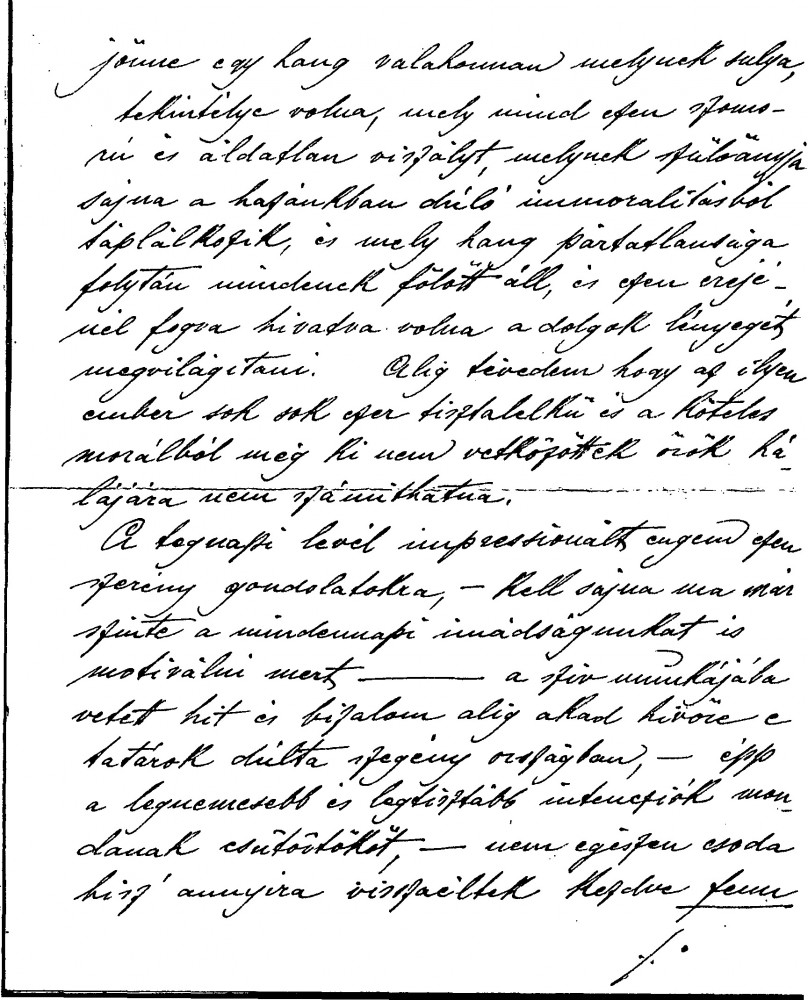 jönne egy hang valahonnan melynek sulya,
tekintélye volna, mely mind ezen szomo-
rú és áldatlan viszályt, melynek szülöányja
sajna a hazánkban dúló immoralitásból
táplálkozik, és mely hang pártatlansága
folytán mindenek fölött áll, és ezen erejé-
nél fogva hivatva volna a dolgok lényegét,
megvilágitani. Alig tévedem hogy az ilyen
ember sok sok ezer tisztalelkü és a köteles
morálból még ki nem vetkőzöttek örök há-
lájára nem számithatna.
A tegnapi levél impressionált engem ezen
szerény gondolatokra, — kell sajna ma már
szinte a mindennapi imádságunkat is
motiválni mert, ——— a sziv munkájába
vetett hit és bizalom alig akad hivőre e
tatárok dúlta szegény országban, — épp
a legnemesebb és legtisztább intencziók mon-
danak csütörtököt, — nem egészen csoda
hisz' annyira visszaéltek kezdve fenn
./.